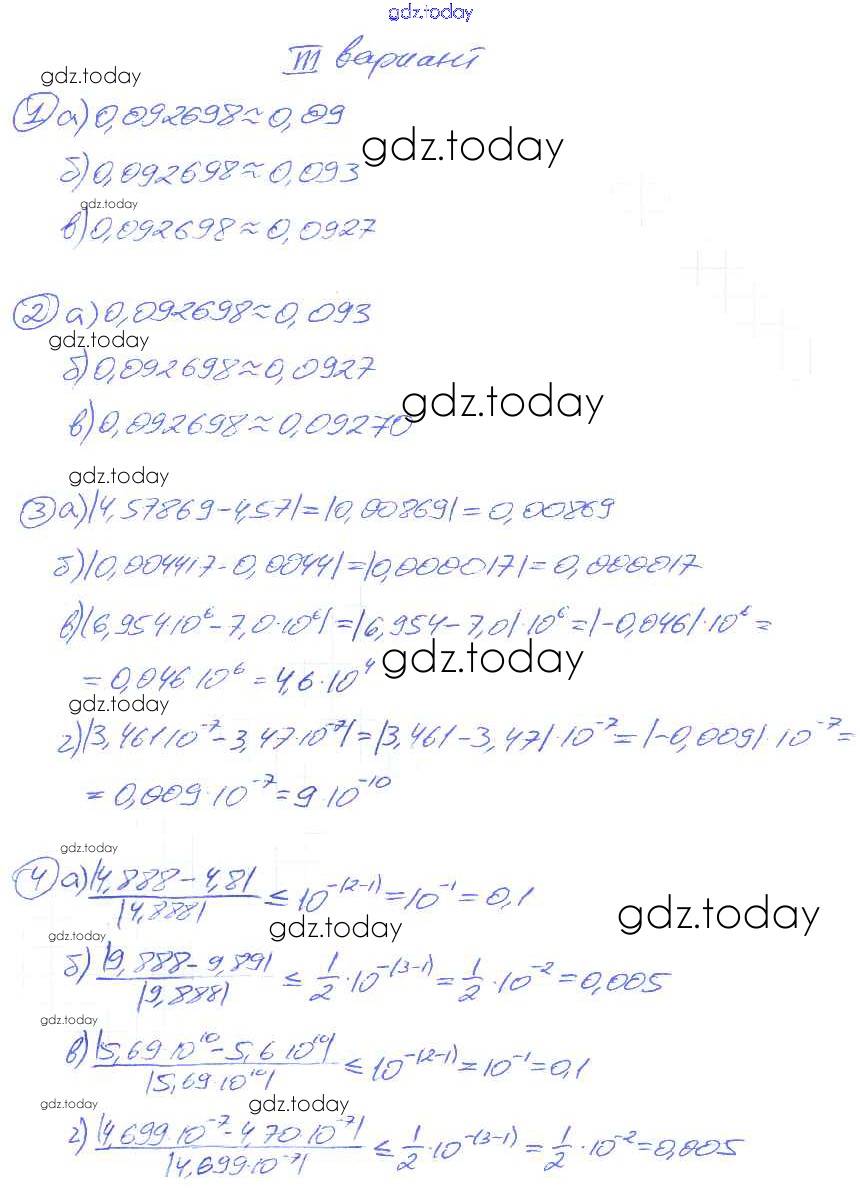 gdz.today
III вариант
gdz.today
① а) 0,092698≈0,09
gdz.today
б) 0,092698≈0,093
gdz.today
в) 0,092698≈0,0927
② а) 0,092698≈0,093
gdz.today
б) 0,092698≈0,0927
gdz.today
в) 0,092698≈0,09270
gdz.today
③ а) |4,57869-4,57|=|0,00869|=0,00869
б) |0,004417-0,0044|=|0,000017|=0,000017
в) |6,954·10⁶-7,0·10⁶|=|6,954-7,0|·10⁶=|-0,046|·10⁶=
gdz.today
=0,046·10⁶=4,6·10⁴
gdz.today
г) |3,461·10⁻⁷-3,47·10⁻⁷|=|3,461-3,47|·10⁻⁷=|-0,009|·10⁻⁷=
=0,009·10⁻⁷=9·10⁻¹⁰
gdz.today
④ а) |4,888-4,8|/|4,888| ≤ 10⁻⁽²⁻¹⁾=10⁻¹=0,1
gdz.today
gdz.today
gdz.today
б) |9,888-9,89|/|9,888| ≤ 1/2·10⁻⁽³⁻¹⁾=1/2·10⁻²=0,005
gdz.today
в) |5,69·10¹⁰-5,6·10¹⁰|/|5,69·10¹⁰| ≤ 10⁻⁽²⁻¹⁾=10⁻¹=0,1
gdz.today
gdz.today
г) |4,699·10⁻⁷-4,70·10⁻⁷|/|4,699·10⁻⁷| ≤ 1/2·10⁻⁽³⁻¹⁾=1/2·10⁻²=0,005